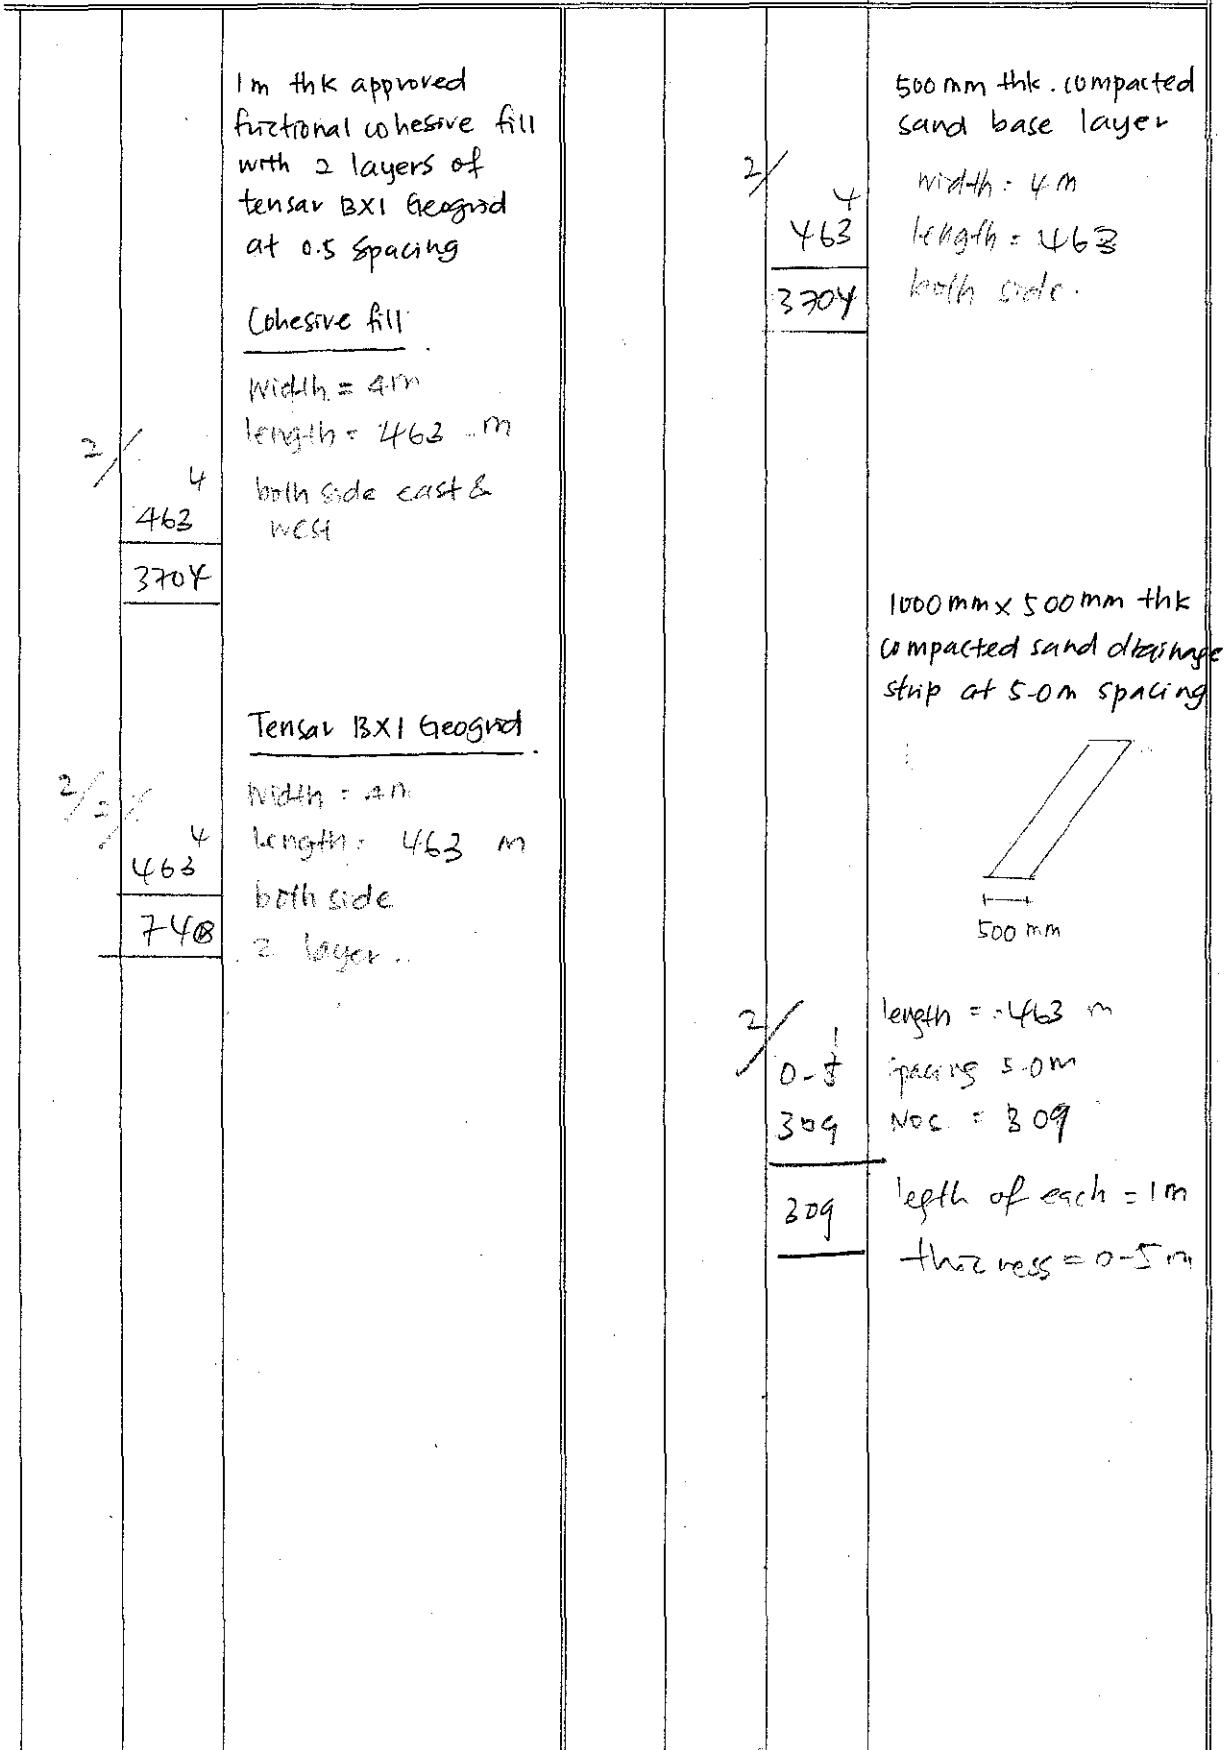 1m thk approved
frictional cohesive fill
with 2 layers of
tensar BX1 Geogrid
at 0.5 spacing
Cohesive fill
Width = 4m
length = 463 m
2/
4
463
both side east &
west
3704
Tensar BX1 Geogrid
2/2/
Width = 4m
4
length = 463 m
463
both side
7408
2 layer
500 mm thk. compacted
sand base layer
2/
4
width = 4m
463
length = 463
3704
both side.
1000mm x 500mm thk
compacted sand drainage
strip at 5.0m spacing
500 mm
length = 463 m
2/
1
0.5
spacing 5.0m
309
Nos. = 309
309
legth of each = 1m
thickness = 0.5m